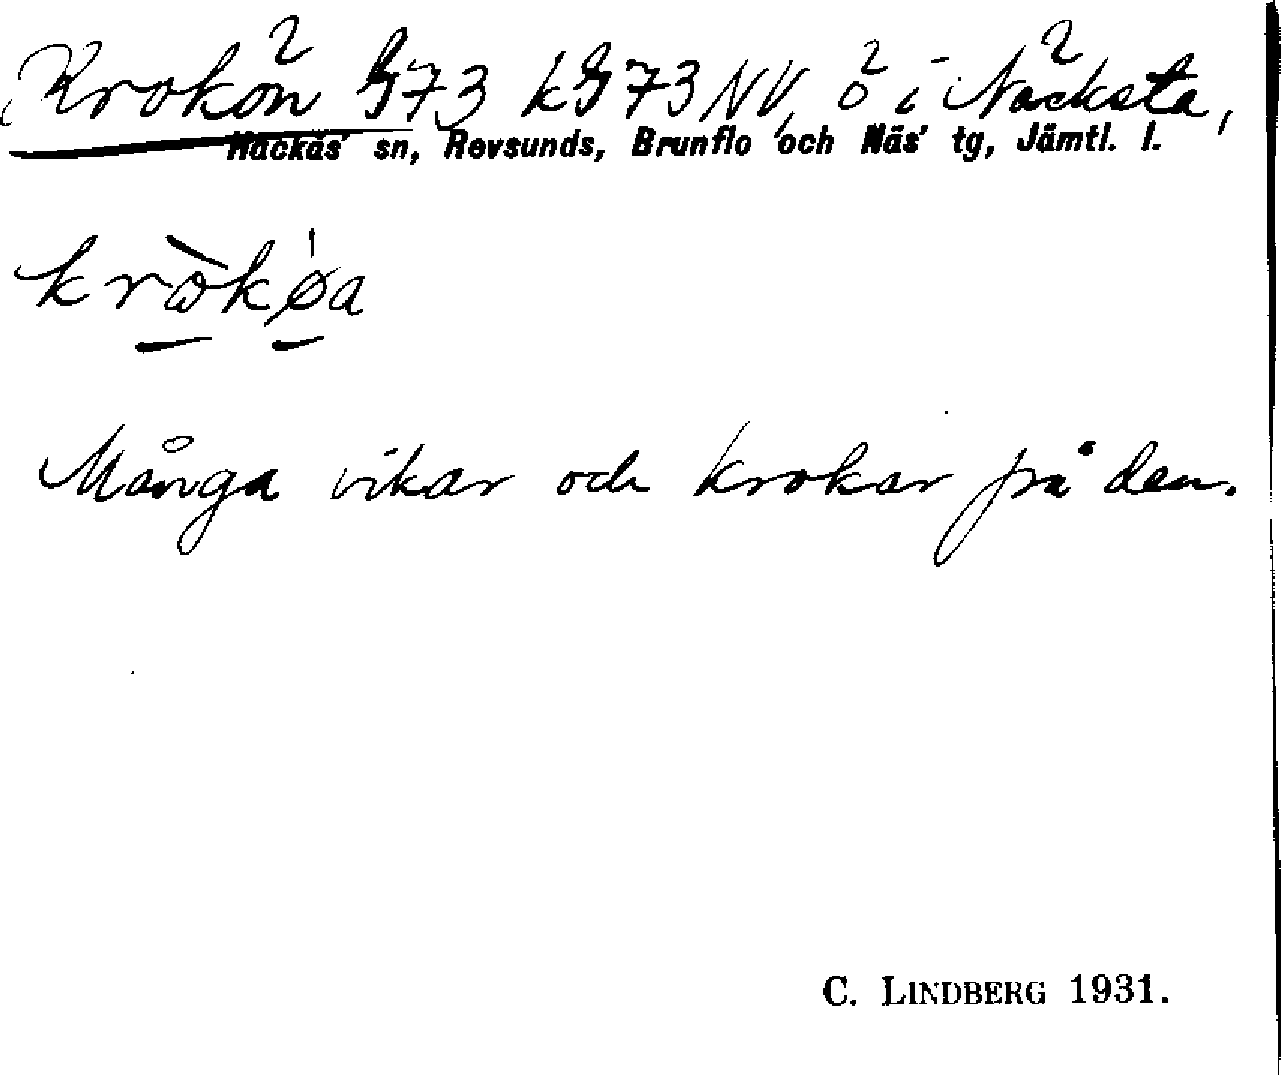 Krokön G73 kG73NV, ö i Näcksta,
Hackås sn, Revsunds, Brunflo och Näs' tg, Jämtl. l.
kròkøa
Många vikar och krokar på den.
C. LINDBERG 1931.